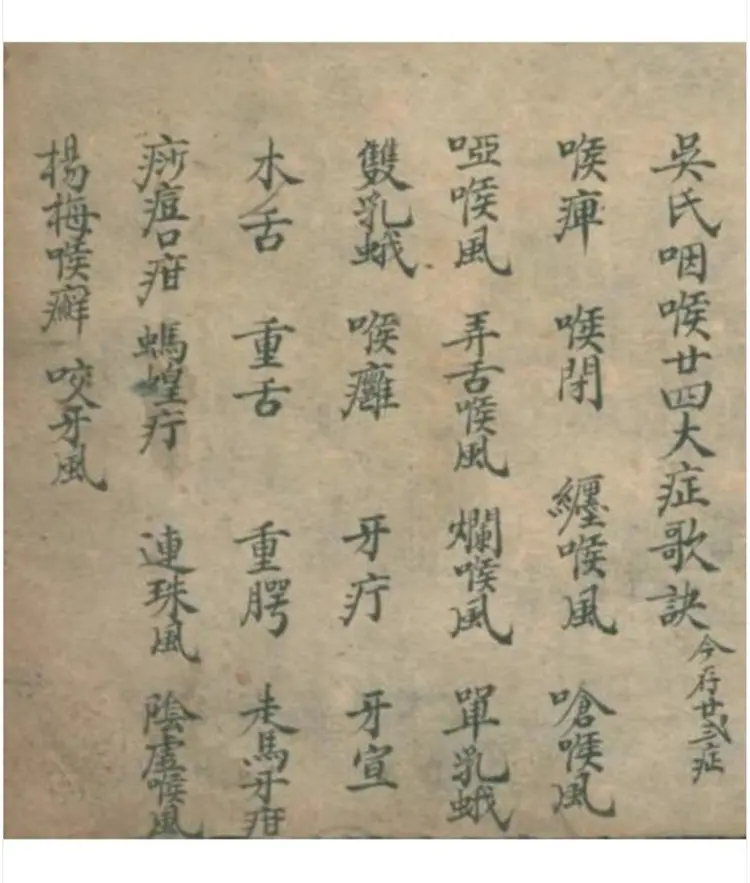 吳氏咽喉廿四大症歌訣 今存廿三症
喉痺 喉閉 纏喉風 嗆喉風
啞喉風 弄舌喉風 爛喉風 單乳蛾
雙乳蛾 喉癰 牙疔 牙宣
木舌 重舌 重腭 走馬牙疳
痧痘口疳 螞蝗疔 連珠風 陰虛喉風
楊梅喉癬 咬牙風